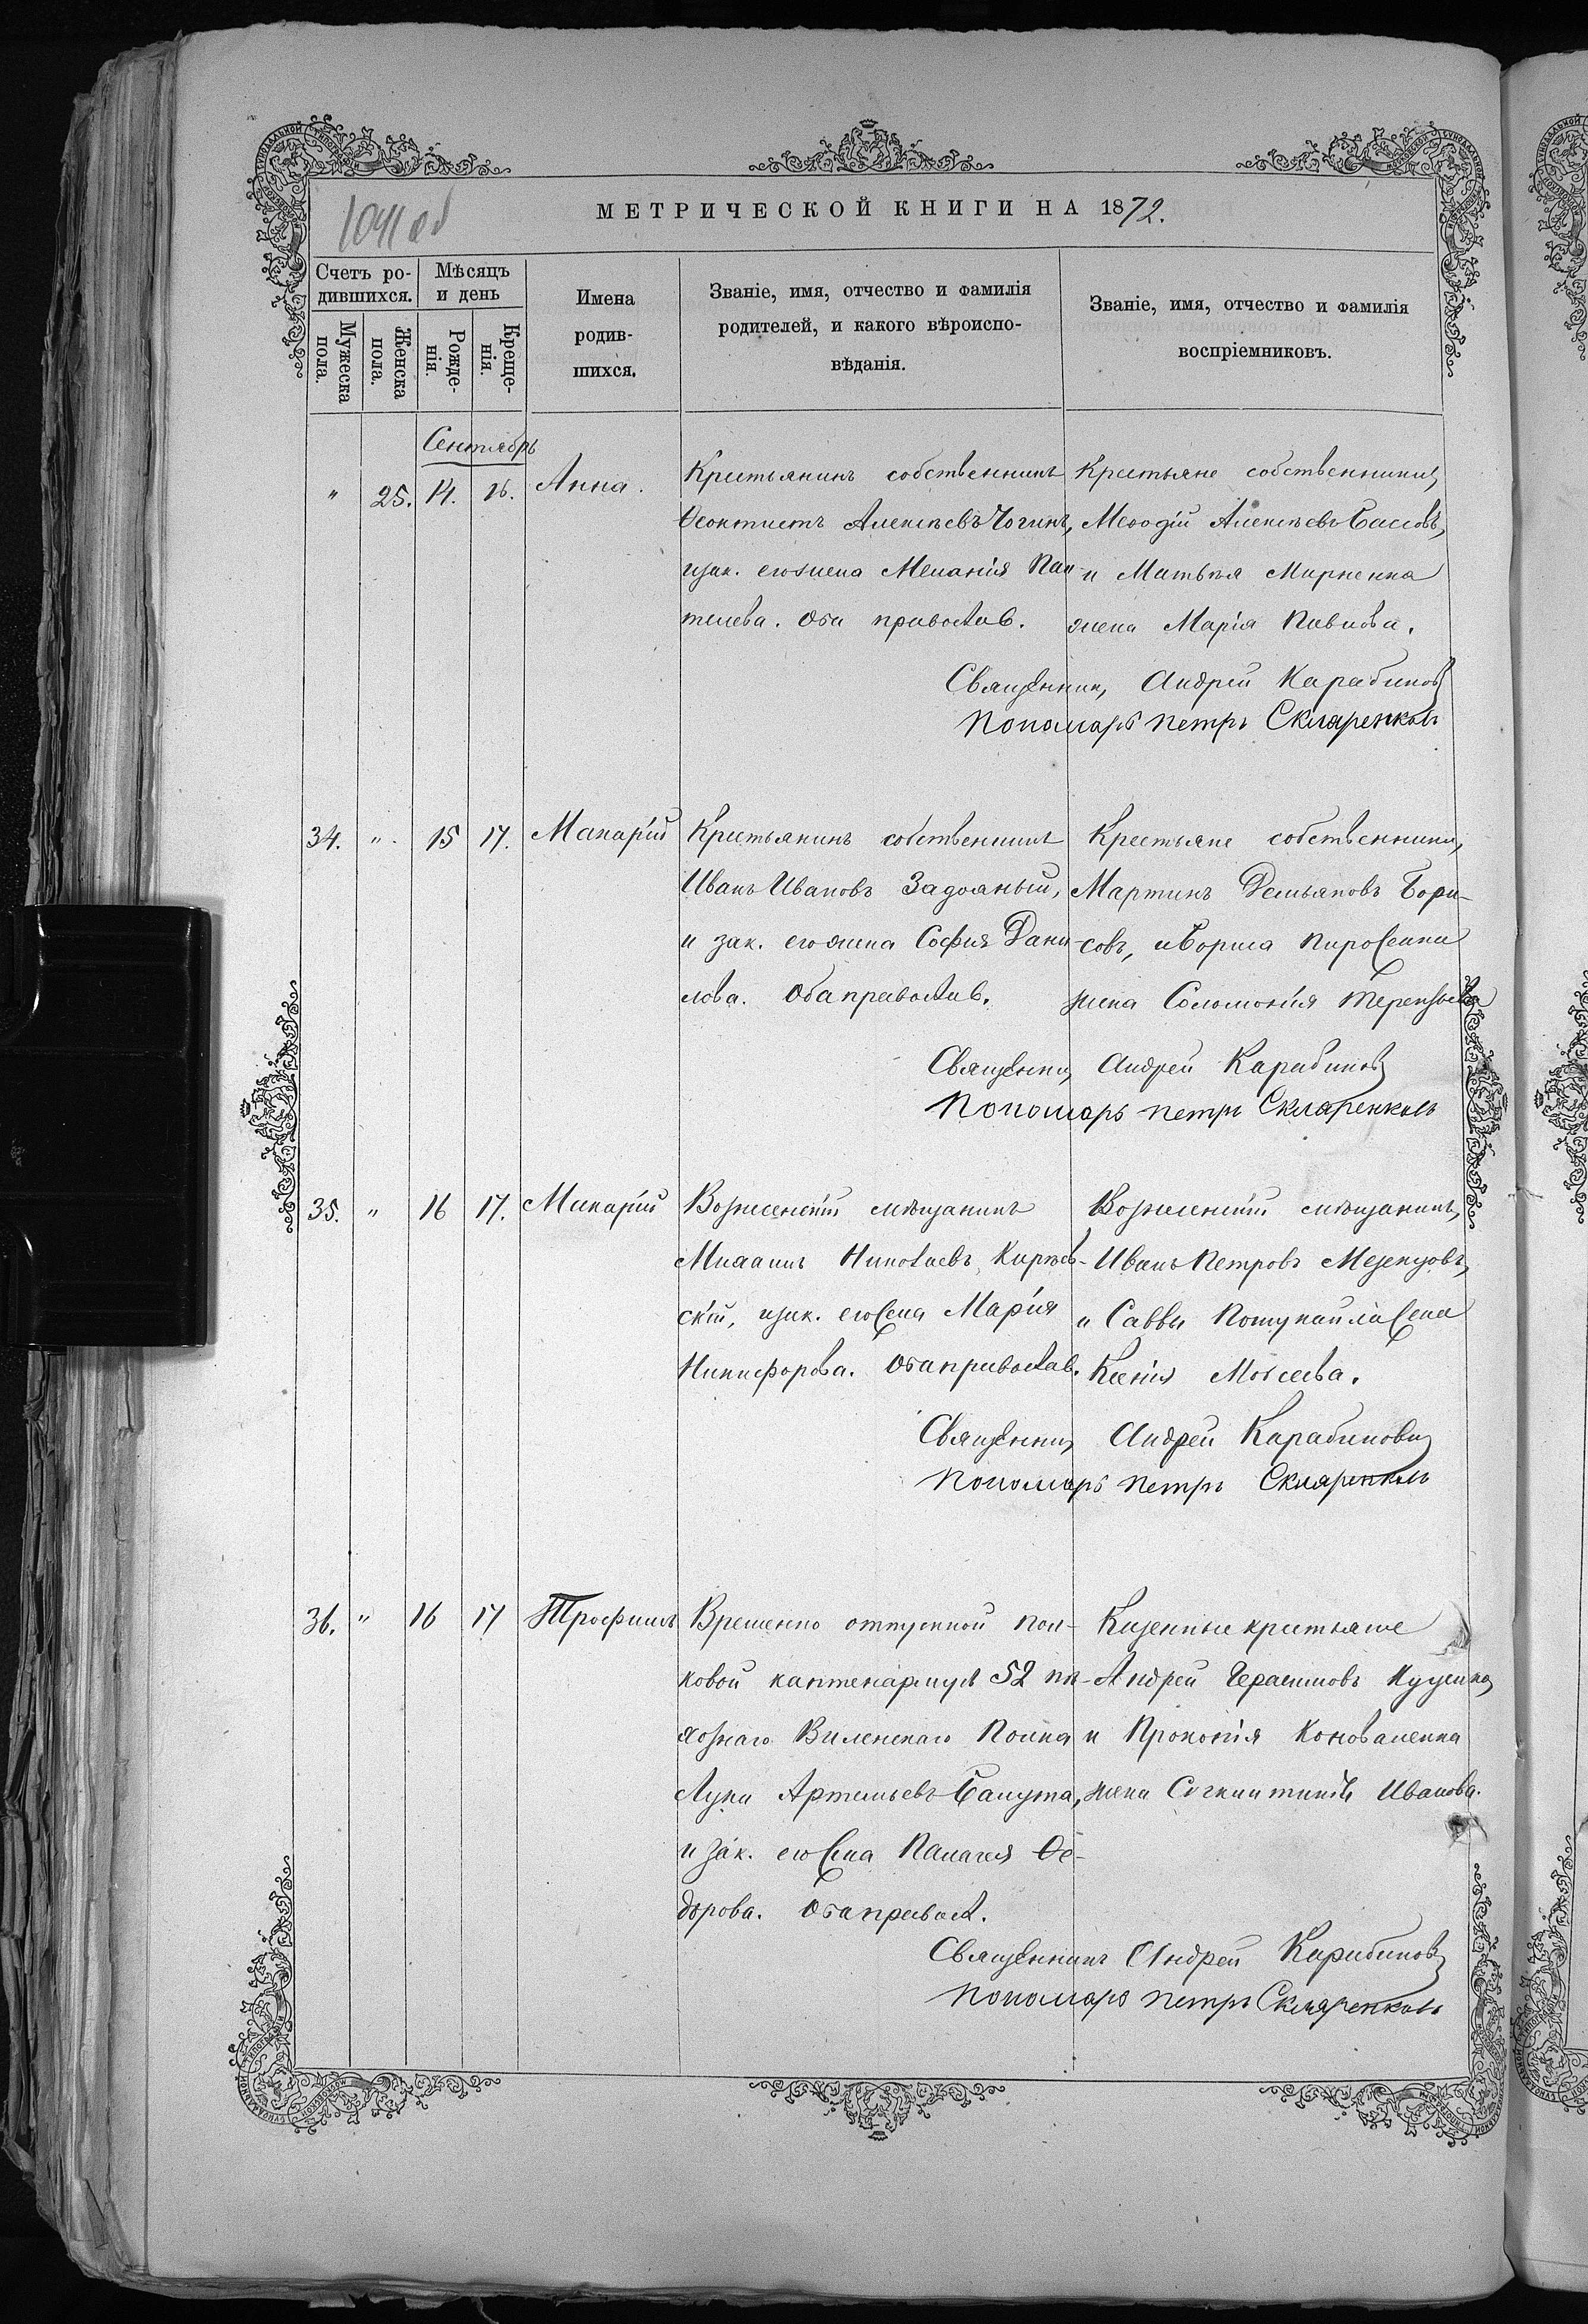 1041 об
МЕТРИЧЕСКОЙ КНИГИ НА 1872.
Счетъ ро-
дившихся.
Мужеска
пола.
Женска
пола.
Мѣсяцъ
и день
Рожде-
нія.
Креще-
нія.
Имена
родив-
шихся.
Званіе, имя, отчество и фамилія
родителей, и какого вѣроиспо-
вѣданія.
Званіе, имя, отчество и фамилія
воспріемниковъ.
Сентябрь
" 25. 14. 16. Анна.
Крестьянинъ собственникъ
Ѳеоктистъ Алексѣевъ
и зак. его жена Меланія Пан
телева. Оба православ.
Крестьяне собственники,
Меѳодій Алексѣевъ Бассовъ,
и Матвѣя Мирненка
жена Марія Павлова.
Священник, Андрей Карабиновъ
Пономарь Петръ Скляренковъ
34. " 15 17. Макарій
Крестьянинъ собственникъ
Иванъ Ивановъ Задояный,
и зак. его жена Софія Дани
лова. Оба православ.
Крестьяне собственники,
Мартинъ Демьяновъ Бори-
совъ, и Бориса жена
жена Соломонія Терентьева
Священник, Андрей Карабиновъ
Пономарь Петръ Скляренковъ
35. " 16 17. Макарій
Вознесенскій мѣщанинъ
Михаилъ Николаевъ Кирѣев-
скій, и зак. его жена Марія
Никифорова. Оба православ.
Вознесенскій мѣщанинъ,
Иванъ Петровъ Мезенцовъ,
и Саввы Потупайла жена
Ксенія Моѵсеева.
Священник, Андрей Карабиновъ
Пономарь Петръ Скляренковъ
36. " 16 17 Трофимъ
Временно отпускной пол-
ковой каптенармусъ 52 пѣ-
хотнаго Виленскаго Полка
Лука Артемьевъ Балута,
и зак. его жена Палагея Ѳе-
дорова. Оба правосл.
Казенные крестьяне
Андрей Герасимовъ Куценко,
и Прокопія Коноваленка
жена Иванова.
Священникъ Андрей Карабиновъ
Пономарь Петръ Скляренковъ